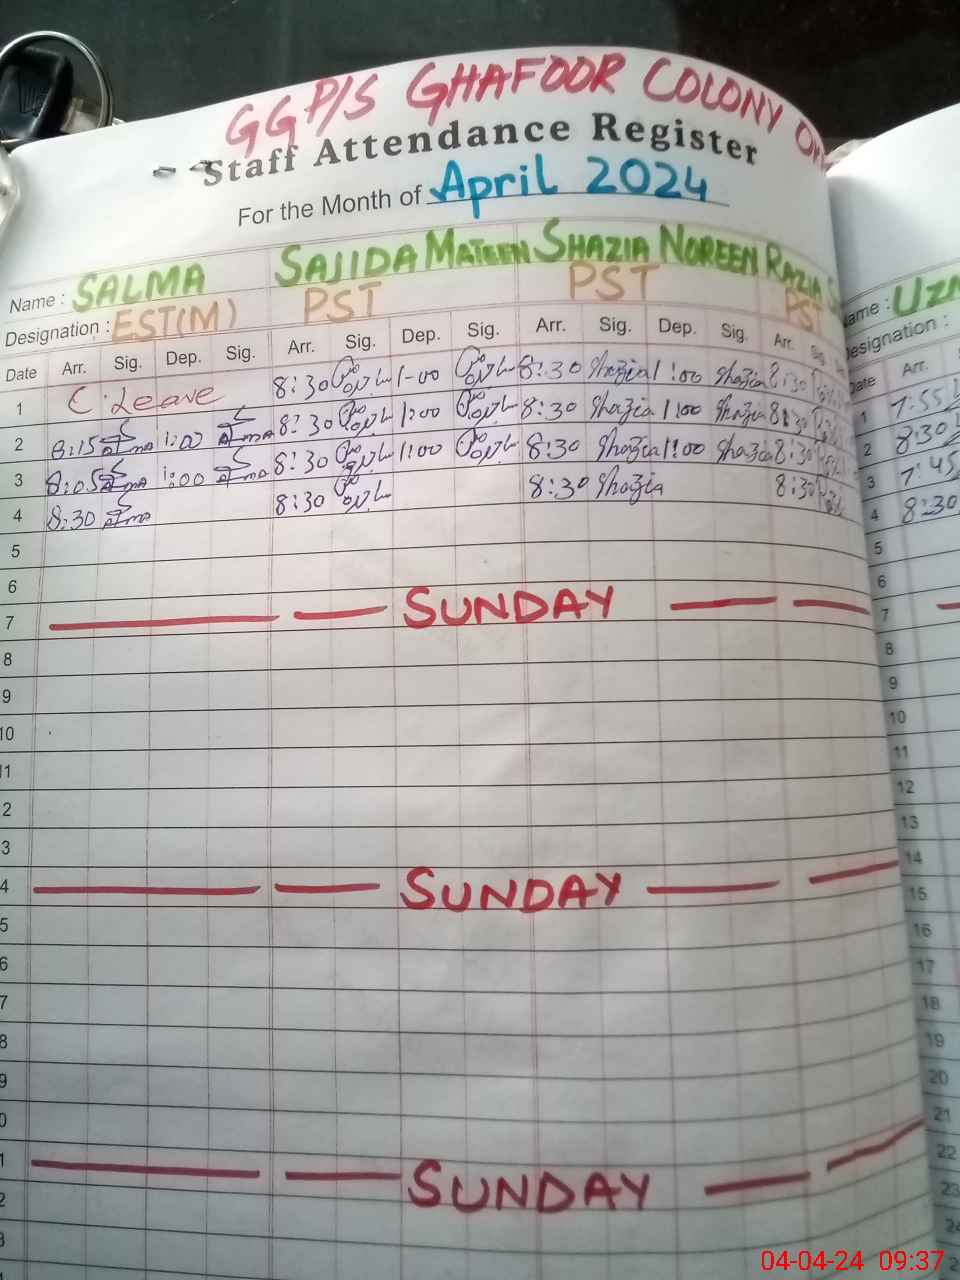 GGP/S GHAFOOR COLONY
Staff Attendance Register
For the Month of April 2024
Name : SALMA SAJIDA MATEEN SHAZIA NOREEN RAZIA
Designation : EST(M) PST PST PST
Date Arr. Sig. Dep. Sig. Arr. Sig. Dep. Sig. Arr. Sig. Dep. Sig. Arr. Sig.
1 C. Leave 8:30 1-00 8:30 Shazia 1:00 Shazia 8:30
2 8:15 1:00 8:30 1:00 8:30 Shazia 1:00 Shazia 8:30
3 8:05 1:00 8:30 1:00 8:30 Shazia 1:00 Shazia 8:30
4 8:30 8:30 8:30 Shazia 8:30
5
6
7 SUNDAY
8
9
10
11
2
3
4 SUNDAY
5
6
7
8
9
0
1 SUNDAY
2
3
ame : UZM
esignation :
Date Arr.
1 7:55
2 8:30
3 7:45
4 8:30
5
6
7
8
9
10
11
12
13
14
15
16
17
18
19
20
21
22
23
24
04-04-24 09:37